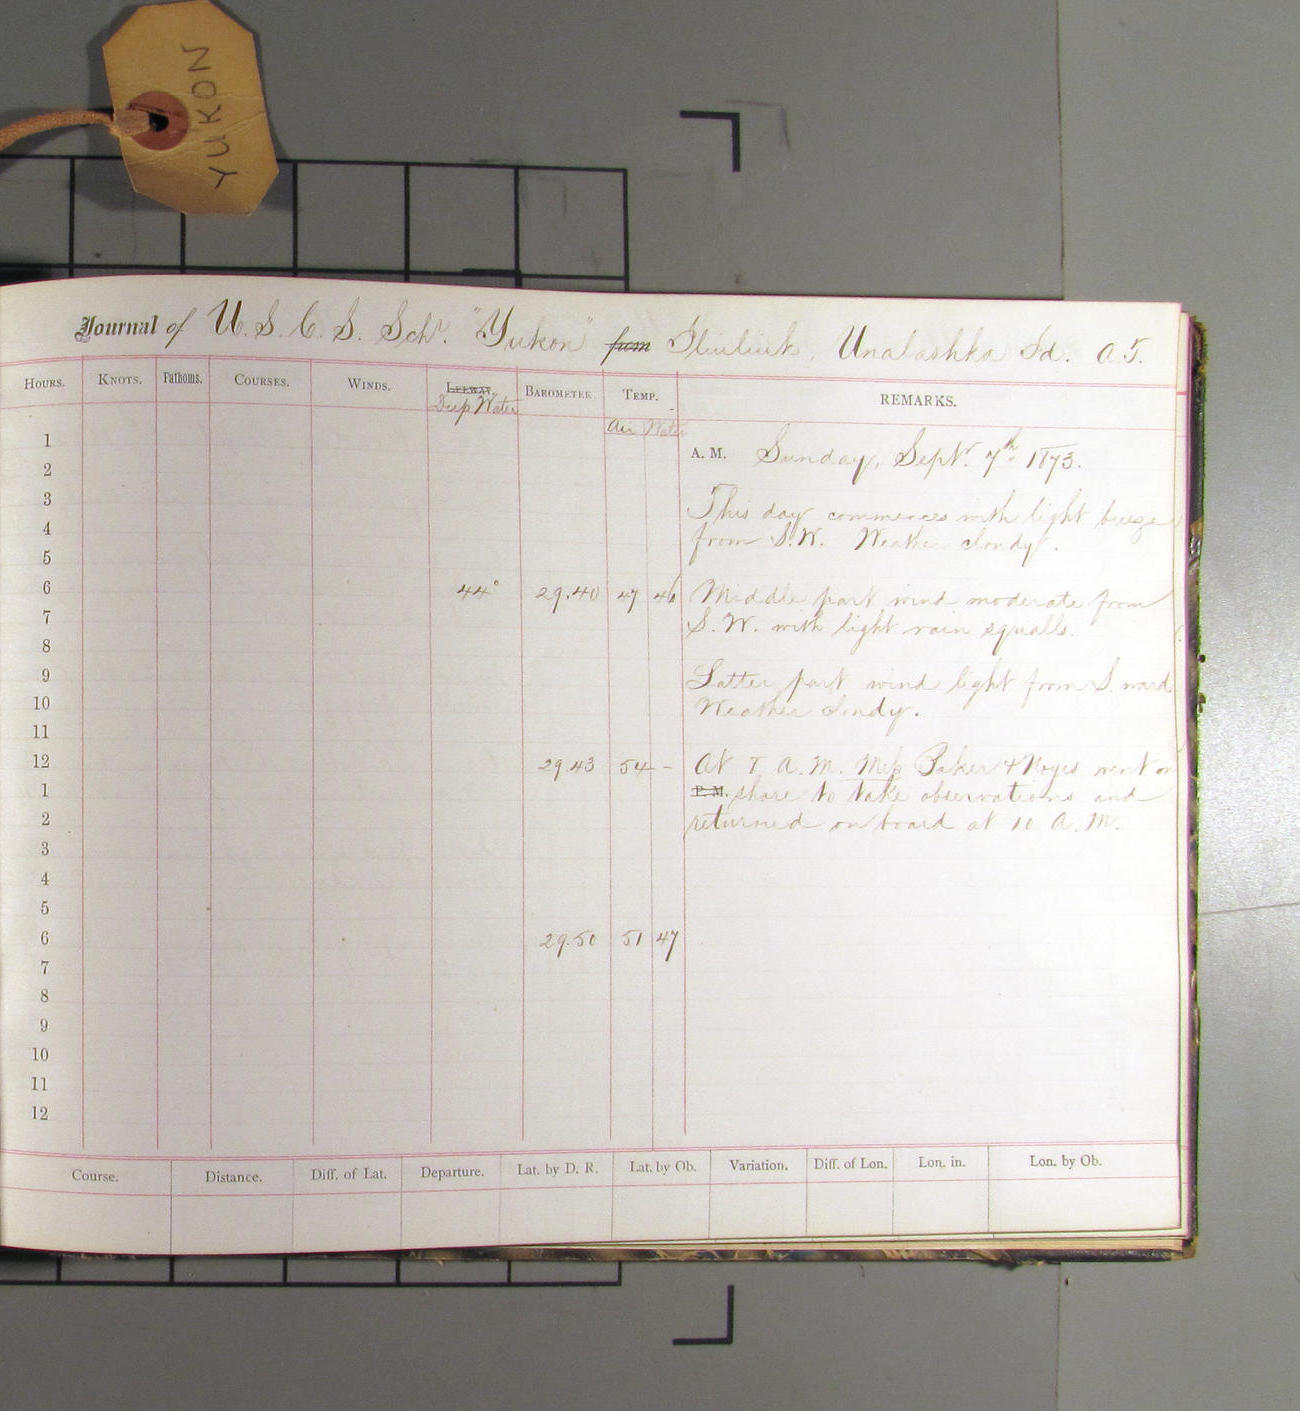 YUKON
Journal of U. S. C. S. Schr. "Yukon" from Iliuliuk, Unalashka Id. A.T.
HOURS. KNOTS. Fathoms. COURSES. WINDS. LEEWAY. BAROMETER TEMP. REMARKS.
Deep Water
Air Water
1
A. M. Sunday, Sept. 7th 1873.
2
3
This day commences with light breeze
4
from S.W. Weather cloudy.
5
6 44° 29.40 47 46 Middle part wind moderate from
7
S. W. with light rain squalls.
8
9
Latter part wind light from S. ward
10
Weather cloudy.
11
12 29.43 54 - At 8 A. M. Mess Baker & Noyes went on
1 P. M. shore to take observations and
2 returned on board at 10 A. M.
3
4
5
6 29.50 51 47
7
8
9
10
11
12
Course. Distance. Diff. of Lat. Departure. Lat. by D. R. Lat. by Ob. Variation. Diff. of Lon. Lon. in. Lon. by Ob.